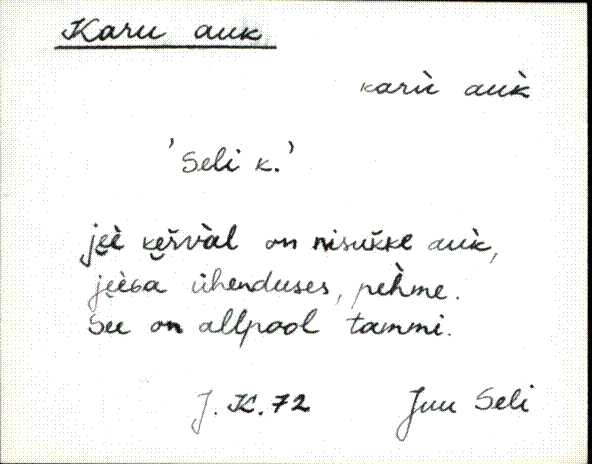 Karu auk
karù auk̀
'Seli k.'
je̮è ke̮šv̀al on nisukke auk̀,
je̮èga ühenduses, peh̀me.
See on allpool tammi.
J. K. 72 Juu Seli